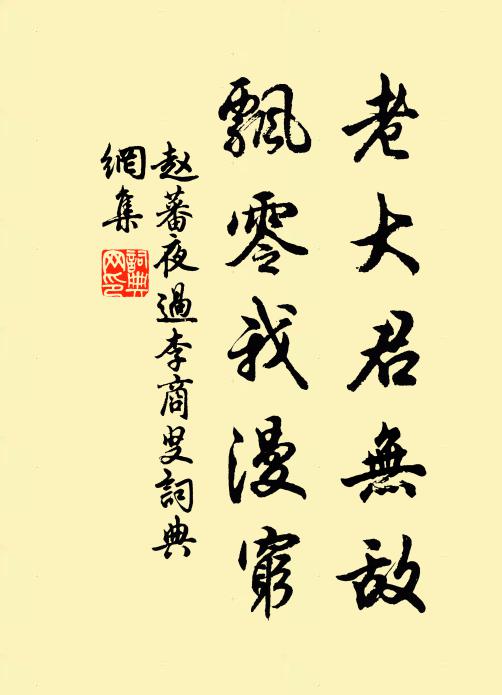 老大君無敌
飄零我漫窮
赵蕃夜過李商叟詞典
網集
詞典
网印